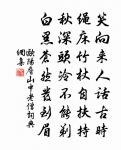 笑向来人话古时
绳床竹杖自扶持
秋深头冷不能剃
白黑苍然发到眉
欧阳詹山中老僧词典
网集